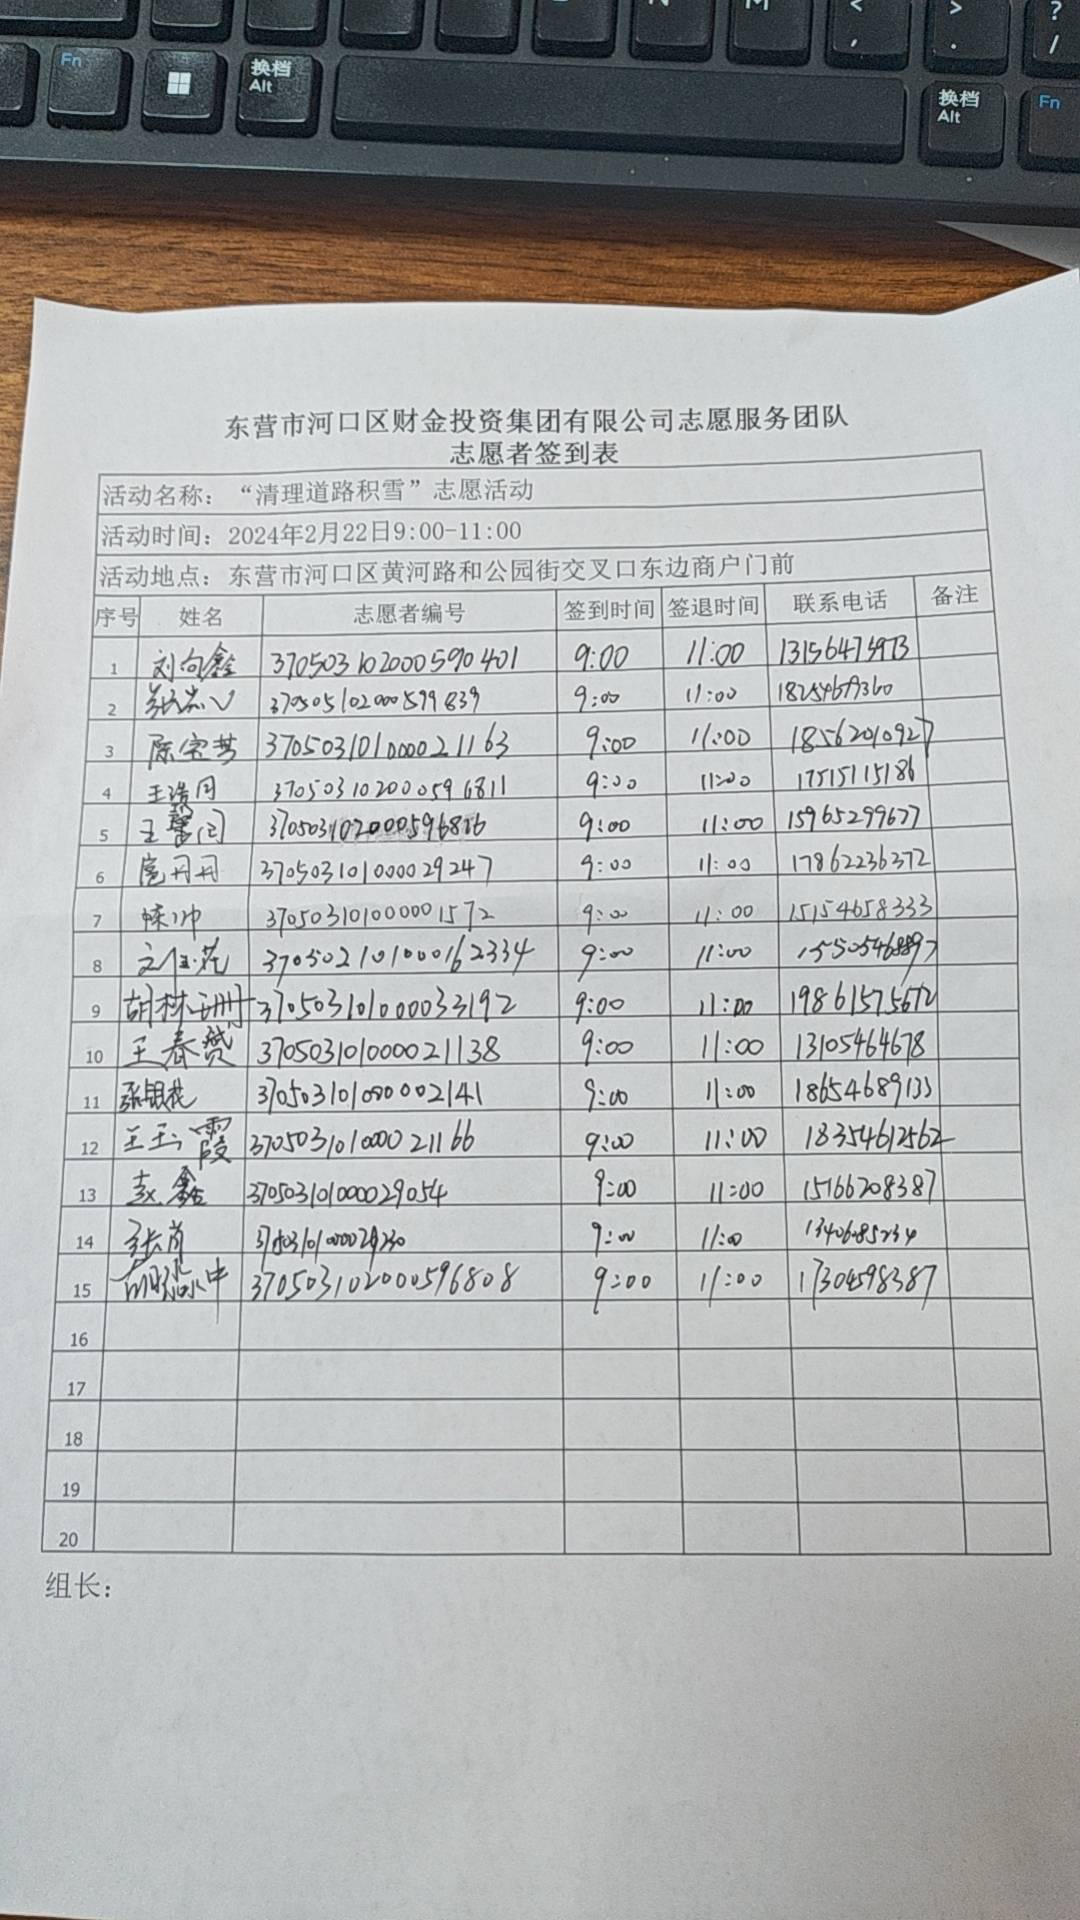 Fn
换档
Alt
N
M
<
,
>
.
?
/
换档
Alt
Fn
东营市河口区财金投资集团有限公司志愿服务团队
志愿者签到表
活动名称：“清理道路积雪”志愿活动
活动时间：2024年2月22日9:00-11:00
活动地点：东营市河口区黄河路和公园街交叉口东边商户门前
序号 姓名 志愿者编号 签到时间 签退时间 联系电话 备注
1 刘向鑫 370503102000590401 9:00 11:00
2 370505102000599839 9:00 11:00
3 370503101000021163 9:00 11:00 18562010927
4 370503102000596811 9:00 11:00 17515115186
5 9:00 11:00 15965299677
6 370503101000029247 9:00 11:00 17862236372
7 370503101000001572 9:00 11:00 15154658333
8 370502101000162334 9:00 11:00
9 胡林珊 370503101000033192 9:00 11:00 19861575672
10 王春赞 370503101000021138 9:00 11:00 13105464678
11 张银花 370503101000002141 9:00 11:00 18654689133
12 王玉霞 370503101000021166 9:00 11:00 18354612562
13 赵鑫 370503101000029054 9:00 11:00 15166208387
14 张肖 9:00 11:00
15 370503102000596808 9:00 11:00 17304598387
16
17
18
19
20
组长：